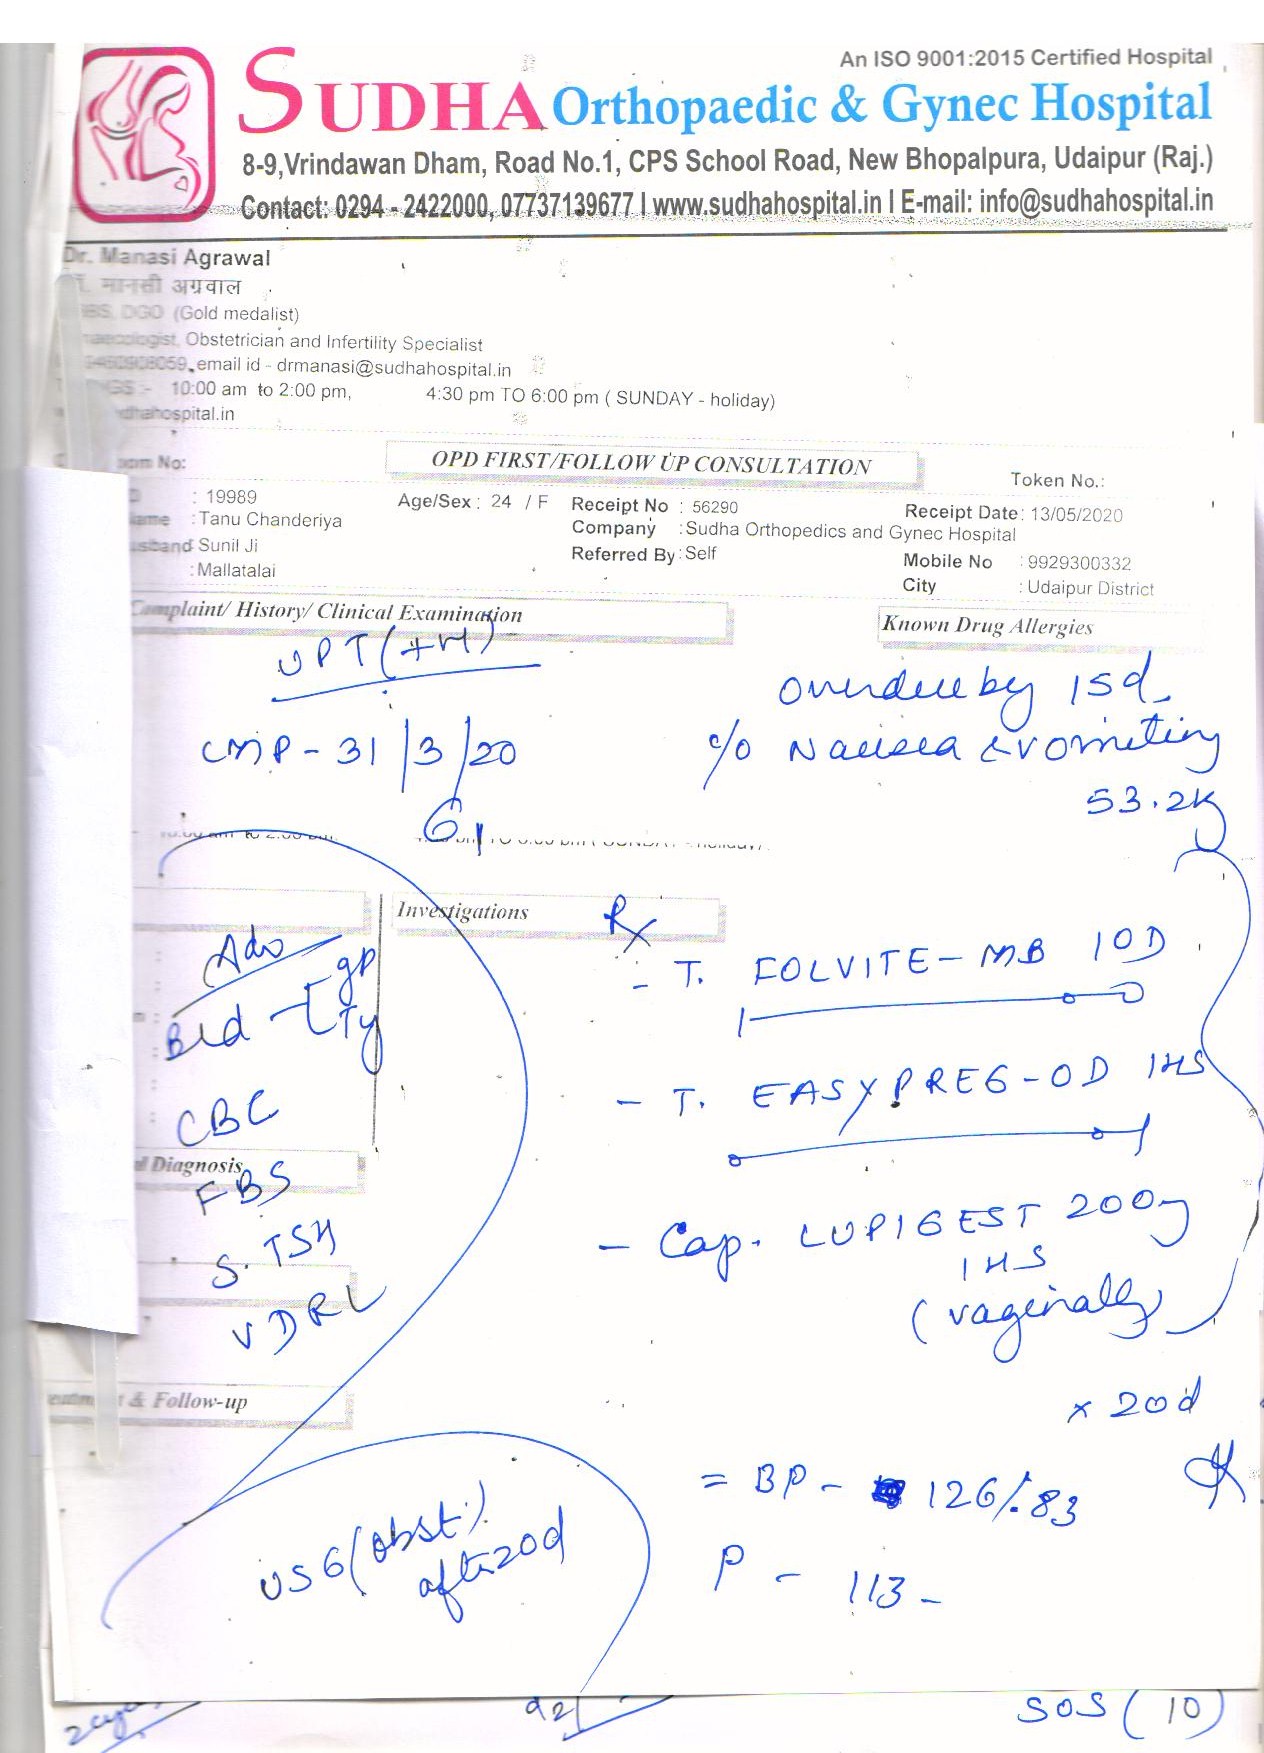 An ISO 9001:2015 Certified Hospital
SUDHA Orthopaedic & Gynec Hospital
8-9,Vrindawan Dham, Road No.1, CPS School Road, New Bhopalpura, Udaipur (Raj.)
Contact: 0294 - 2422000, 07737139677 I www.sudhahospital.in I E-mail: info@sudhahospital.in
Dr. Manasi Agrawal
मानसी अग्रवाल
DGO (Gold medalist)
Obstetrician and Infertility Specialist
email id - drmanasi@sudhahospital.in
10:00 am to 2:00 pm, 4:30 pm TO 6:00 pm ( SUNDAY - holiday)
hospital.in
No:
OPD FIRST/FOLLOW UP CONSULTATION
Token No.:
: 19989 Age/Sex : 24 / F Receipt No : 56290 Receipt Date: 13/05/2020
ame : Tanu Chanderiya Company : Sudha Orthopedics and Gynec Hospital
sband Sunil Ji Referred By : Self Mobile No : 9929300332
: Mallatalai City : Udaipur District
Complaint/ History/ Clinical Examination
Known Drug Allergies
UPT
Overdue by 15d
LMP - 31/3/20
c/o Nausea & vomiting
53.2k
Investigations
Rx
Adv
- T. FOLVITE-MB 10D
Bld gp
Ty
- T. EASYPREG-OD 1HS
CBC
Diagnosis
FBS
- Cap. LUPIGEST 200
S. TSH
1HS
VDRL
(vaginally)
& Follow-up
x 20d
= BP - 126/83
USG (obst)
after 20d
P - 113 -
SOS (10)